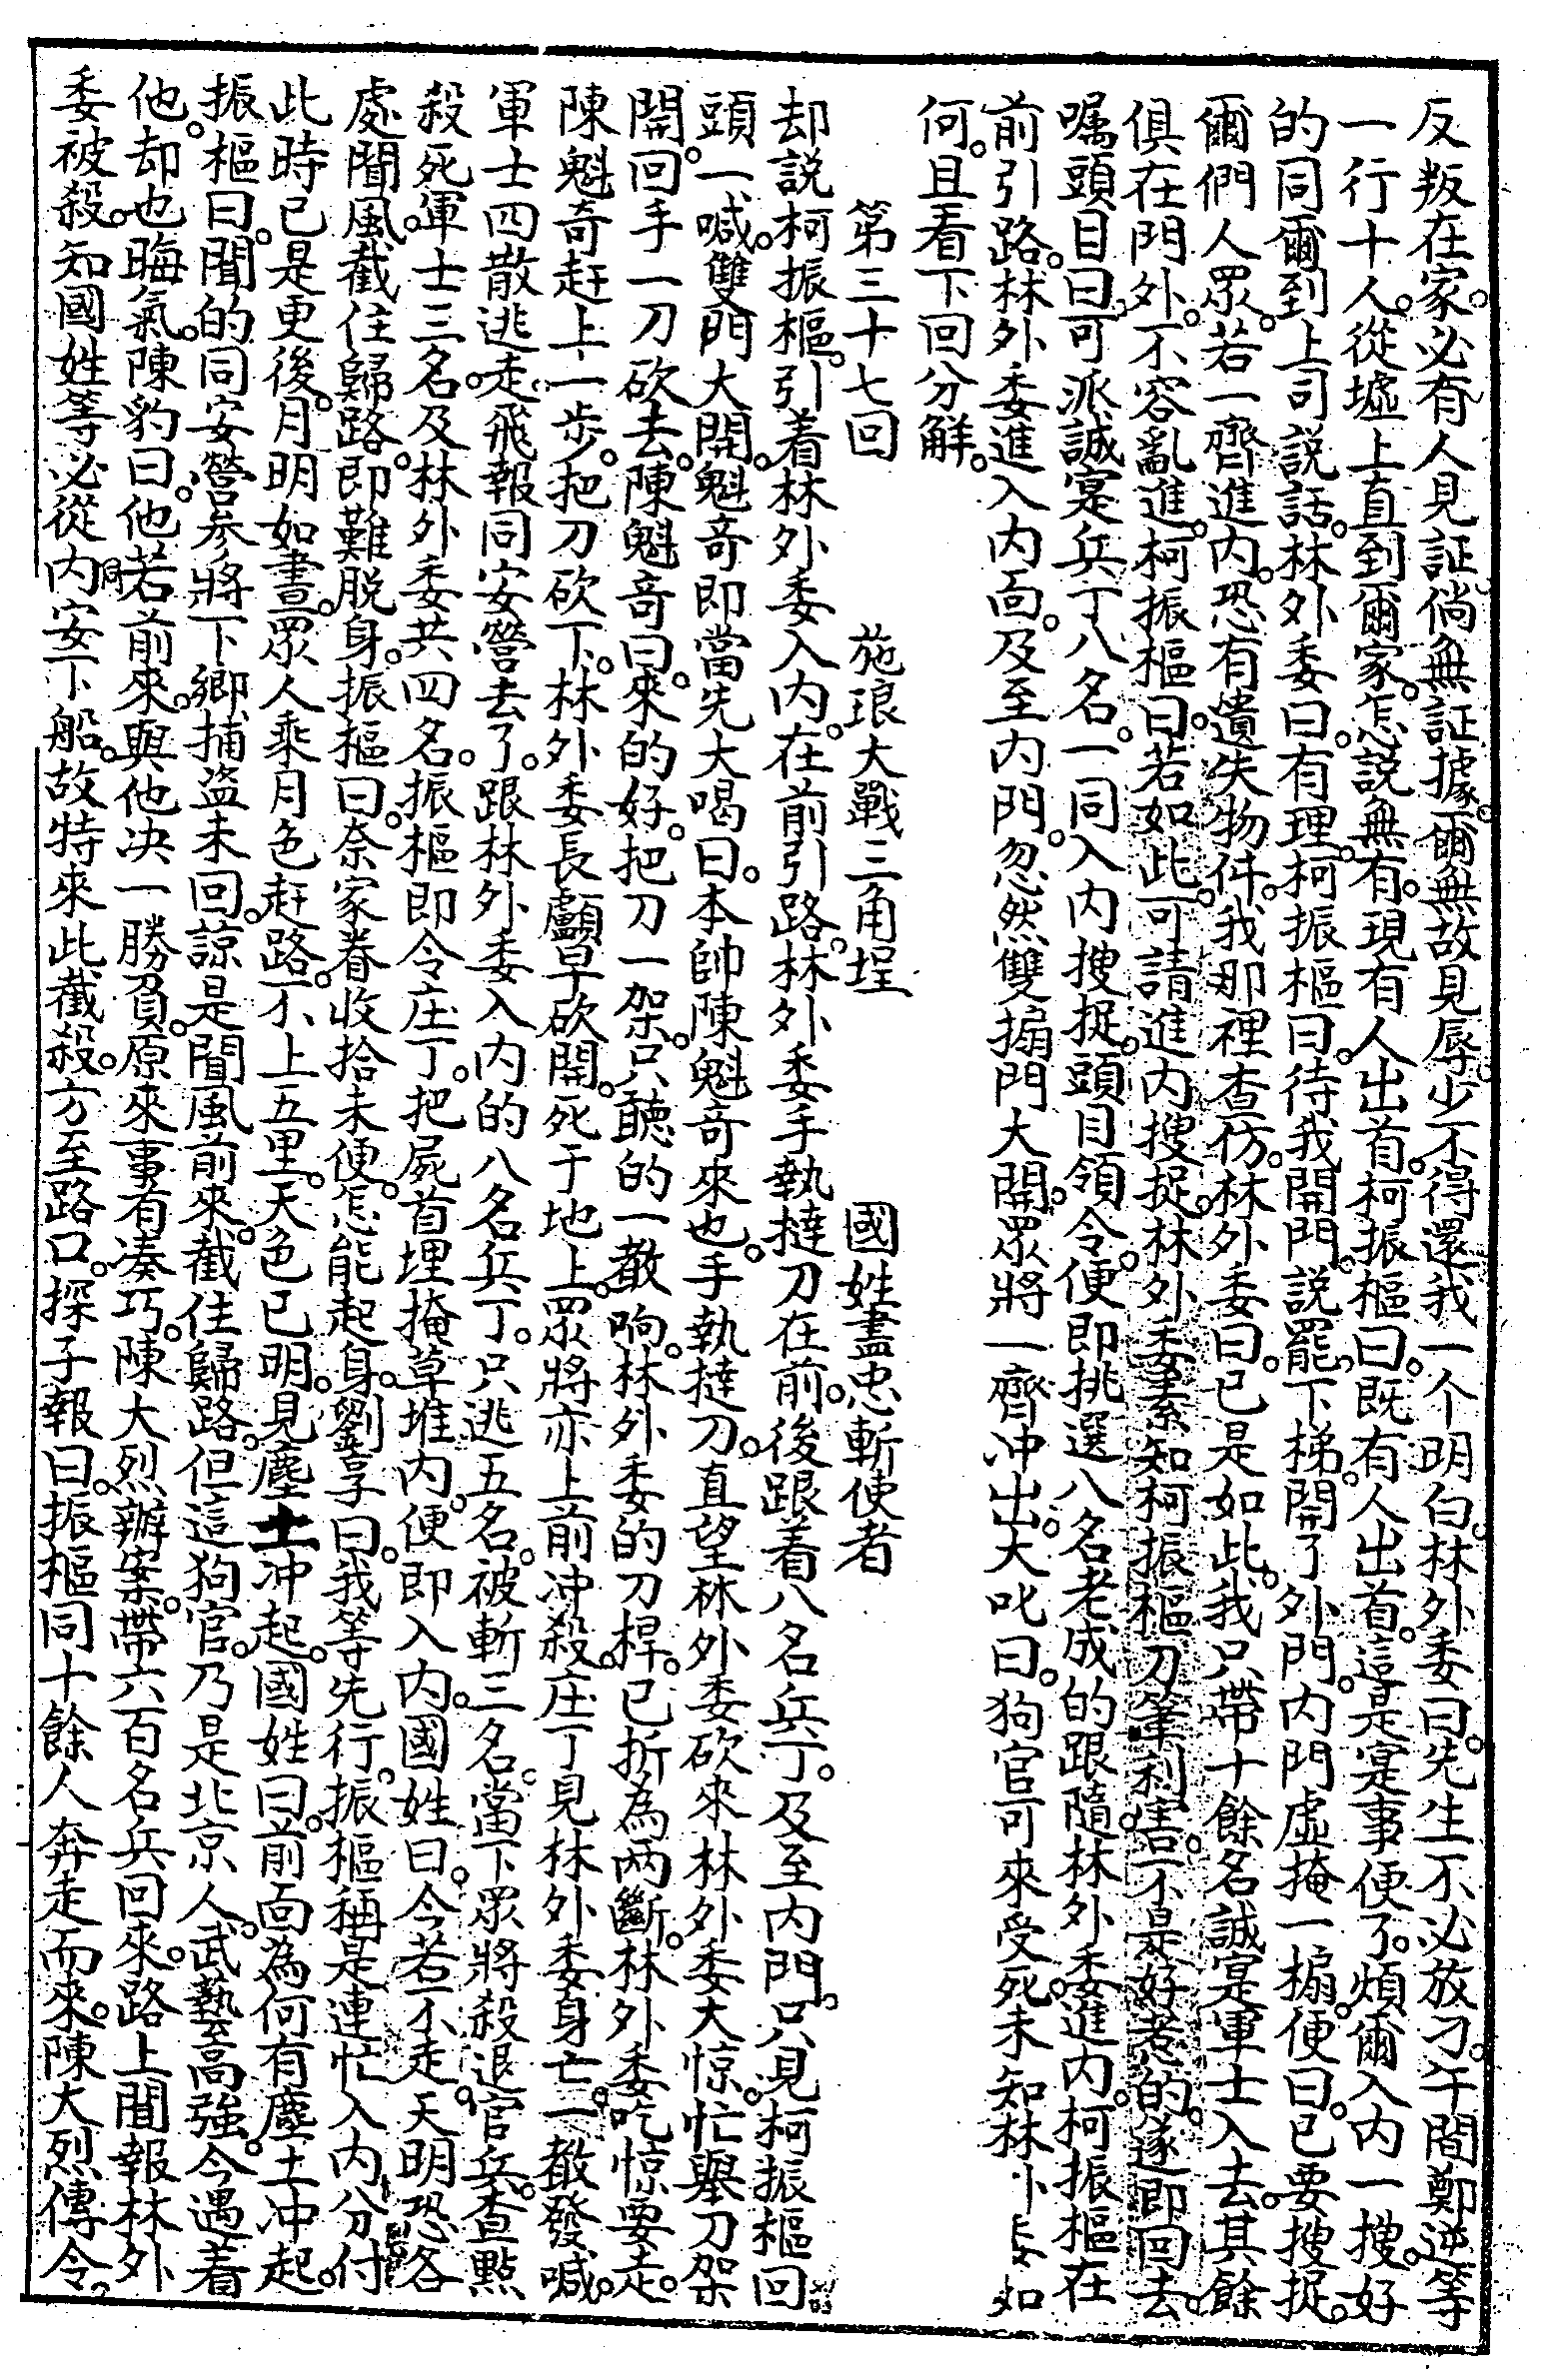 反叛在家。必有人見証。倘無証據。爾無故見辱。少不得還我一个明白。林外委曰。先生不必放刁。午間鄭逆等
一行十人。從墟上直到爾家。怎說無有。現有人出首。柯振樞曰。既有人出首。這是寔事便了。煩爾入內一搜。好
的同爾到上司說話。林外委曰。有理。柯振樞曰。待我開門。說罷。下梯。開了外門。內門虛掩一搧。便曰。已要搜捉。
爾們人眾。若一齊進內。恐有遺失物件。我那裡查仿。林外委曰。已是如此。我只帶十餘名誠寔軍士入去。其餘
俱在門外。不容亂進。柯振樞曰。若如此。可請進內搜捉。林外委素知柯振樞刀筆利害。不是好惹的。遂即回去。
囑頭目曰。可派誠寔兵丁八名。一同入內搜捉。頭目領令。便即挑選八名老成的跟隨。林外委進內。柯振樞在
前引路。林外委進入內面。及至內門。忽然雙搧門大開。眾將一齊冲出。大叱曰。狗官可來受死。未知林外委如
何。且看下回分解。
第三十七回 施琅大戰三角埕 國姓盡忠斬使者
却說柯振樞。引着林外委入內。在前引路。林外委手執撻刀在前。後跟着八名兵丁。及至內門。只見柯振樞回
頭一喊。雙門大開。魁奇即當先大喝曰。本帥陳魁奇來也。手執撻刀。直望林外委砍來。林外委大惊。忙舉刀架
開。回手一刀砍去。陳魁奇曰。來的好。把刀一架。只聽的一声响。林外委的刀桿。已折為两斷。林外委吃惊要走。
陳魁奇赶上一步。把刀砍下。林外委長顱早砍開。死于地上。眾將亦上前冲殺。庄丁見林外委身亡。一声發喊。
軍士四散逃走。飛報同安營去了。跟林外委入內的八名兵丁。只逃五名。被斬三名。當下眾將殺退官兵。查點
殺死軍士三名。及林外委共四名。振樞即令庄丁。把屍首埋掩草堆內。便即入內。國姓曰。今若不走。天明恐各
處聞風截住歸路。即難脫身。振樞曰。奈家眷收拾未便。怎能起身。劉享曰。我等先行。振樞稱是。連忙入內分付
此時已是更後。月明如晝。眾人乘月色赶路。不上五里。天色已明。見塵土冲起。國姓曰。前面為何有塵土冲起。
振樞曰。聞的同安營參將下鄉捕盜未回。諒是聞風前來。截住歸路。但這狗官。乃是北京人。武藝高強。今遇着
他。却也晦氣。陳豹曰。他若前來。與他决一勝負。原來事有凑巧。陳大烈辦案。帶六百名兵回來。路上聞報林外
委被殺。知國姓等必從同內安下船。故特來此截殺。方至路口。探子報曰。振樞同十餘人奔走而來。陳大烈傳令。